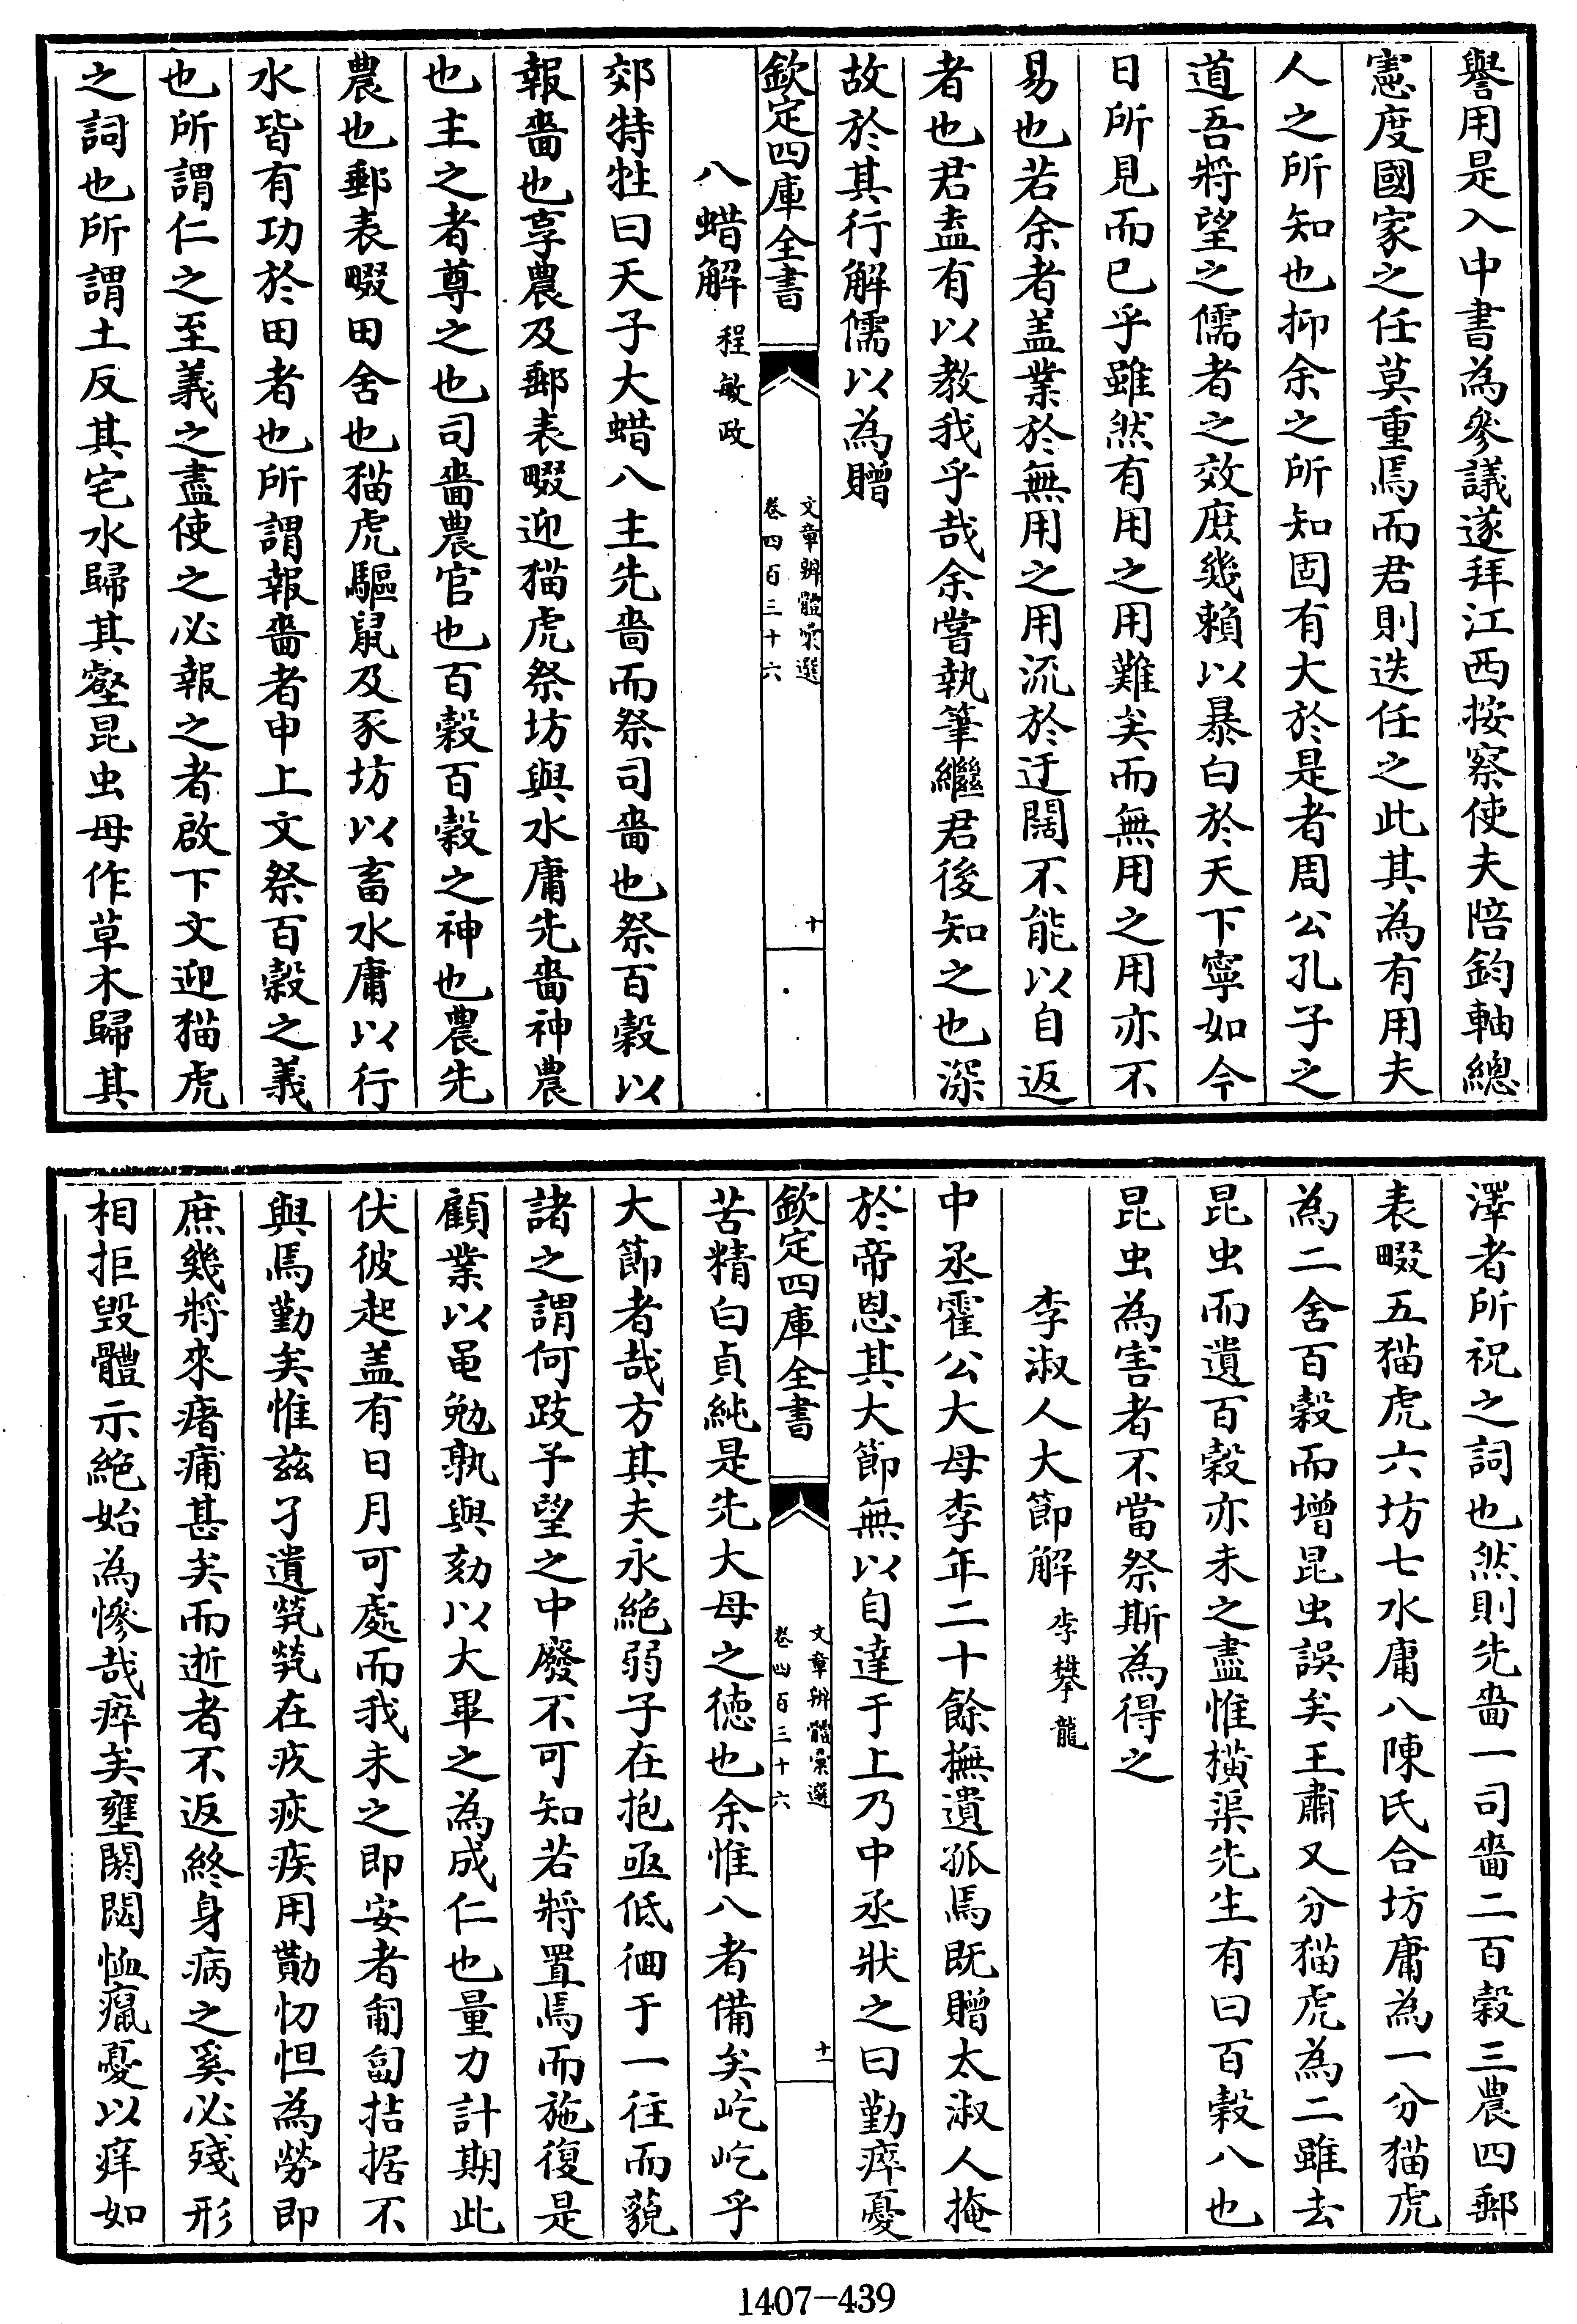 譽用是入中書為參議遂拜江西按察使夫陪鈞軸總
憲度國家之任莫重焉而君則迭任之此其為有用夫
人之所知也抑余之所知固有大於是者周公孔子之
道吾將望之儒者之效庶幾賴以暴白於天下寧如今
日所見而已乎雖然有用之用難矣而無用之用亦不
易也若余者盖業於無用之用流於迂闊不能以自返
者也君盍有以教我乎哉余嘗執筆繼君後知之也深
故於其行解儒以為贈
欽定四庫全書
文章辨體彙選
卷四百三十六
十
八蜡解 程敏政
郊特牲曰天子大蜡八主先嗇而祭司嗇也祭百榖以
報嗇也享農及郵表畷迎猫虎祭坊與水庸先嗇神農
也主之者尊之也司嗇農官也百榖百榖之神也農先
農也郵表畷田舍也猫虎驅鼠及豕坊以畜水庸以行
水皆有功於田者也所謂報嗇者申上文祭百榖之義
也所謂仁之至義之盡使之必報之者啟下文迎猫虎
之詞也所謂土反其宅水歸其壑昆虫毋作草木歸其
澤者所祝之詞也然則先嗇一司嗇二百榖三農四郵
表畷五猫虎六坊七水庸八陳氏合坊庸為一分猫虎
為二舍百榖而增昆虫誤矣王肅又分猫虎為二雖去
昆虫而遺百榖亦未之盡惟橫渠先生有曰百榖八也
昆虫為害者不當祭斯為得之
李淑人大節解 李攀龍
中丞霍公大母李年二十餘撫遺孤焉既贈太淑人掩
於帝恩其大節無以自達于上乃中丞狀之曰勤瘁憂
欽定四庫全書
文章辨體彙選
卷四百三十六
十一
苦精白貞純是先大母之德也余惟八者備矣屹屹乎
大節者哉方其夫永絕弱子在抱亟低徊于一往而藐
諸之謂何跂予望之中廢不可知若將置焉而施復是
顧業以黽勉孰與効以大畢之為成仁也量力計期此
伏彼起盖有日月可處而我未之即安者匍匐拮据不
與焉勤矣惟兹孑遺煢煢在疚疢疾用勩忉怛為勞即
庶幾將來瘏痡甚矣而逝者不返終身病之奚必殘形
相拒毀體示絕始為慘哉瘁矣壅閼閔恤癙憂以痒如
1407-439